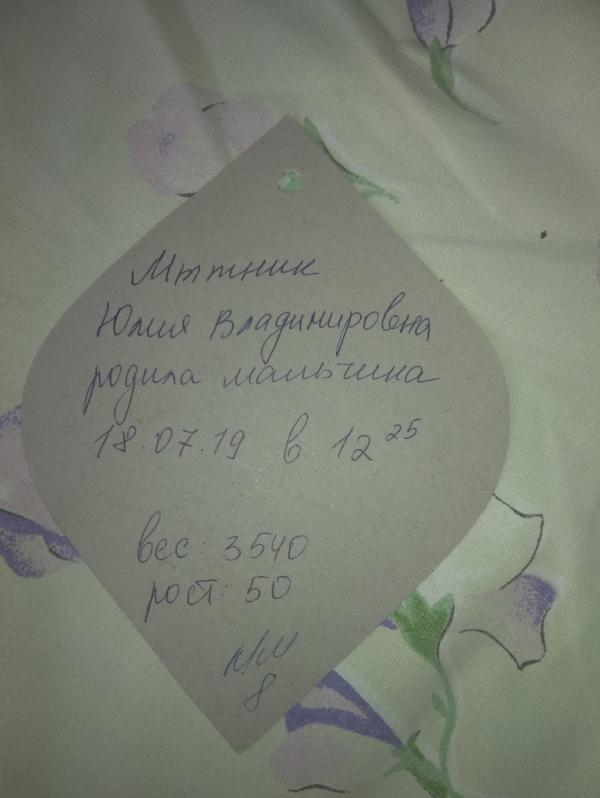 Мтпник
Юлия Владимировна
родила мальчика
18.07.19 в 12 25
вес: 3540
рост: 50
8